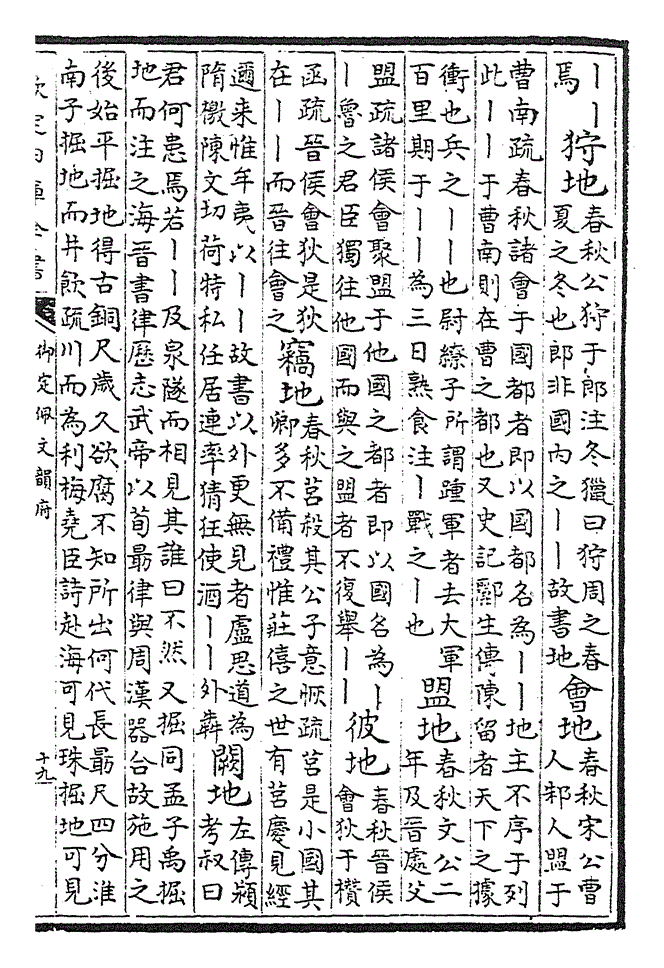 ｜｜
焉
狩地
春秋公狩于郎注冬獵曰狩周之春
夏之冬也郎非國内之｜｜故書地
會地
春秋宋公曹
人邾人盟于
曹南疏春秋諸會于國都者即以國都名為｜｜地主不序于列
此｜｜于曹南則在曹之都也又史記酈生傳陳留者天下之據
衝也兵之｜｜也尉繚子所謂踵軍者去大軍
百里期于｜｜為三日熟食注｜戰之｜也
盟地
春秋文公二
年及晉處父
盟疏諸侯會聚盟于他國之都者即以國名為｜
｜魯之君臣獨往他國而與之盟者不復舉｜｜
彼地
春秋晉侯
會狄于欑
函疏晉侯會狄是狄
在｜｜而晉往會之
竊地
春秋莒殺其公子意恢疏莒是小國其
卿多不備禮惟莊僖之世有莒慶見經
邇来惟年夷以｜｜故書以外更無見者盧思道為
隋檄陳文切荷特私任居連率猜狂使酒｜｜外犇
闕地
左傳潁
考叔曰
君何患焉若｜｜及泉隧而相見其誰曰不然 又掘同孟子禹掘
地而注之海晉書律歷志武帝以荀朂律與周漢器合故施用之
後始平掘地得古銅尺歲久欲腐不知所出何代長朂尺四分淮
南子掘地而井飲疏川而為利梅堯臣詩赴海可見珠掘地可見
欽定四庫全書
御定佩文韻府
十九